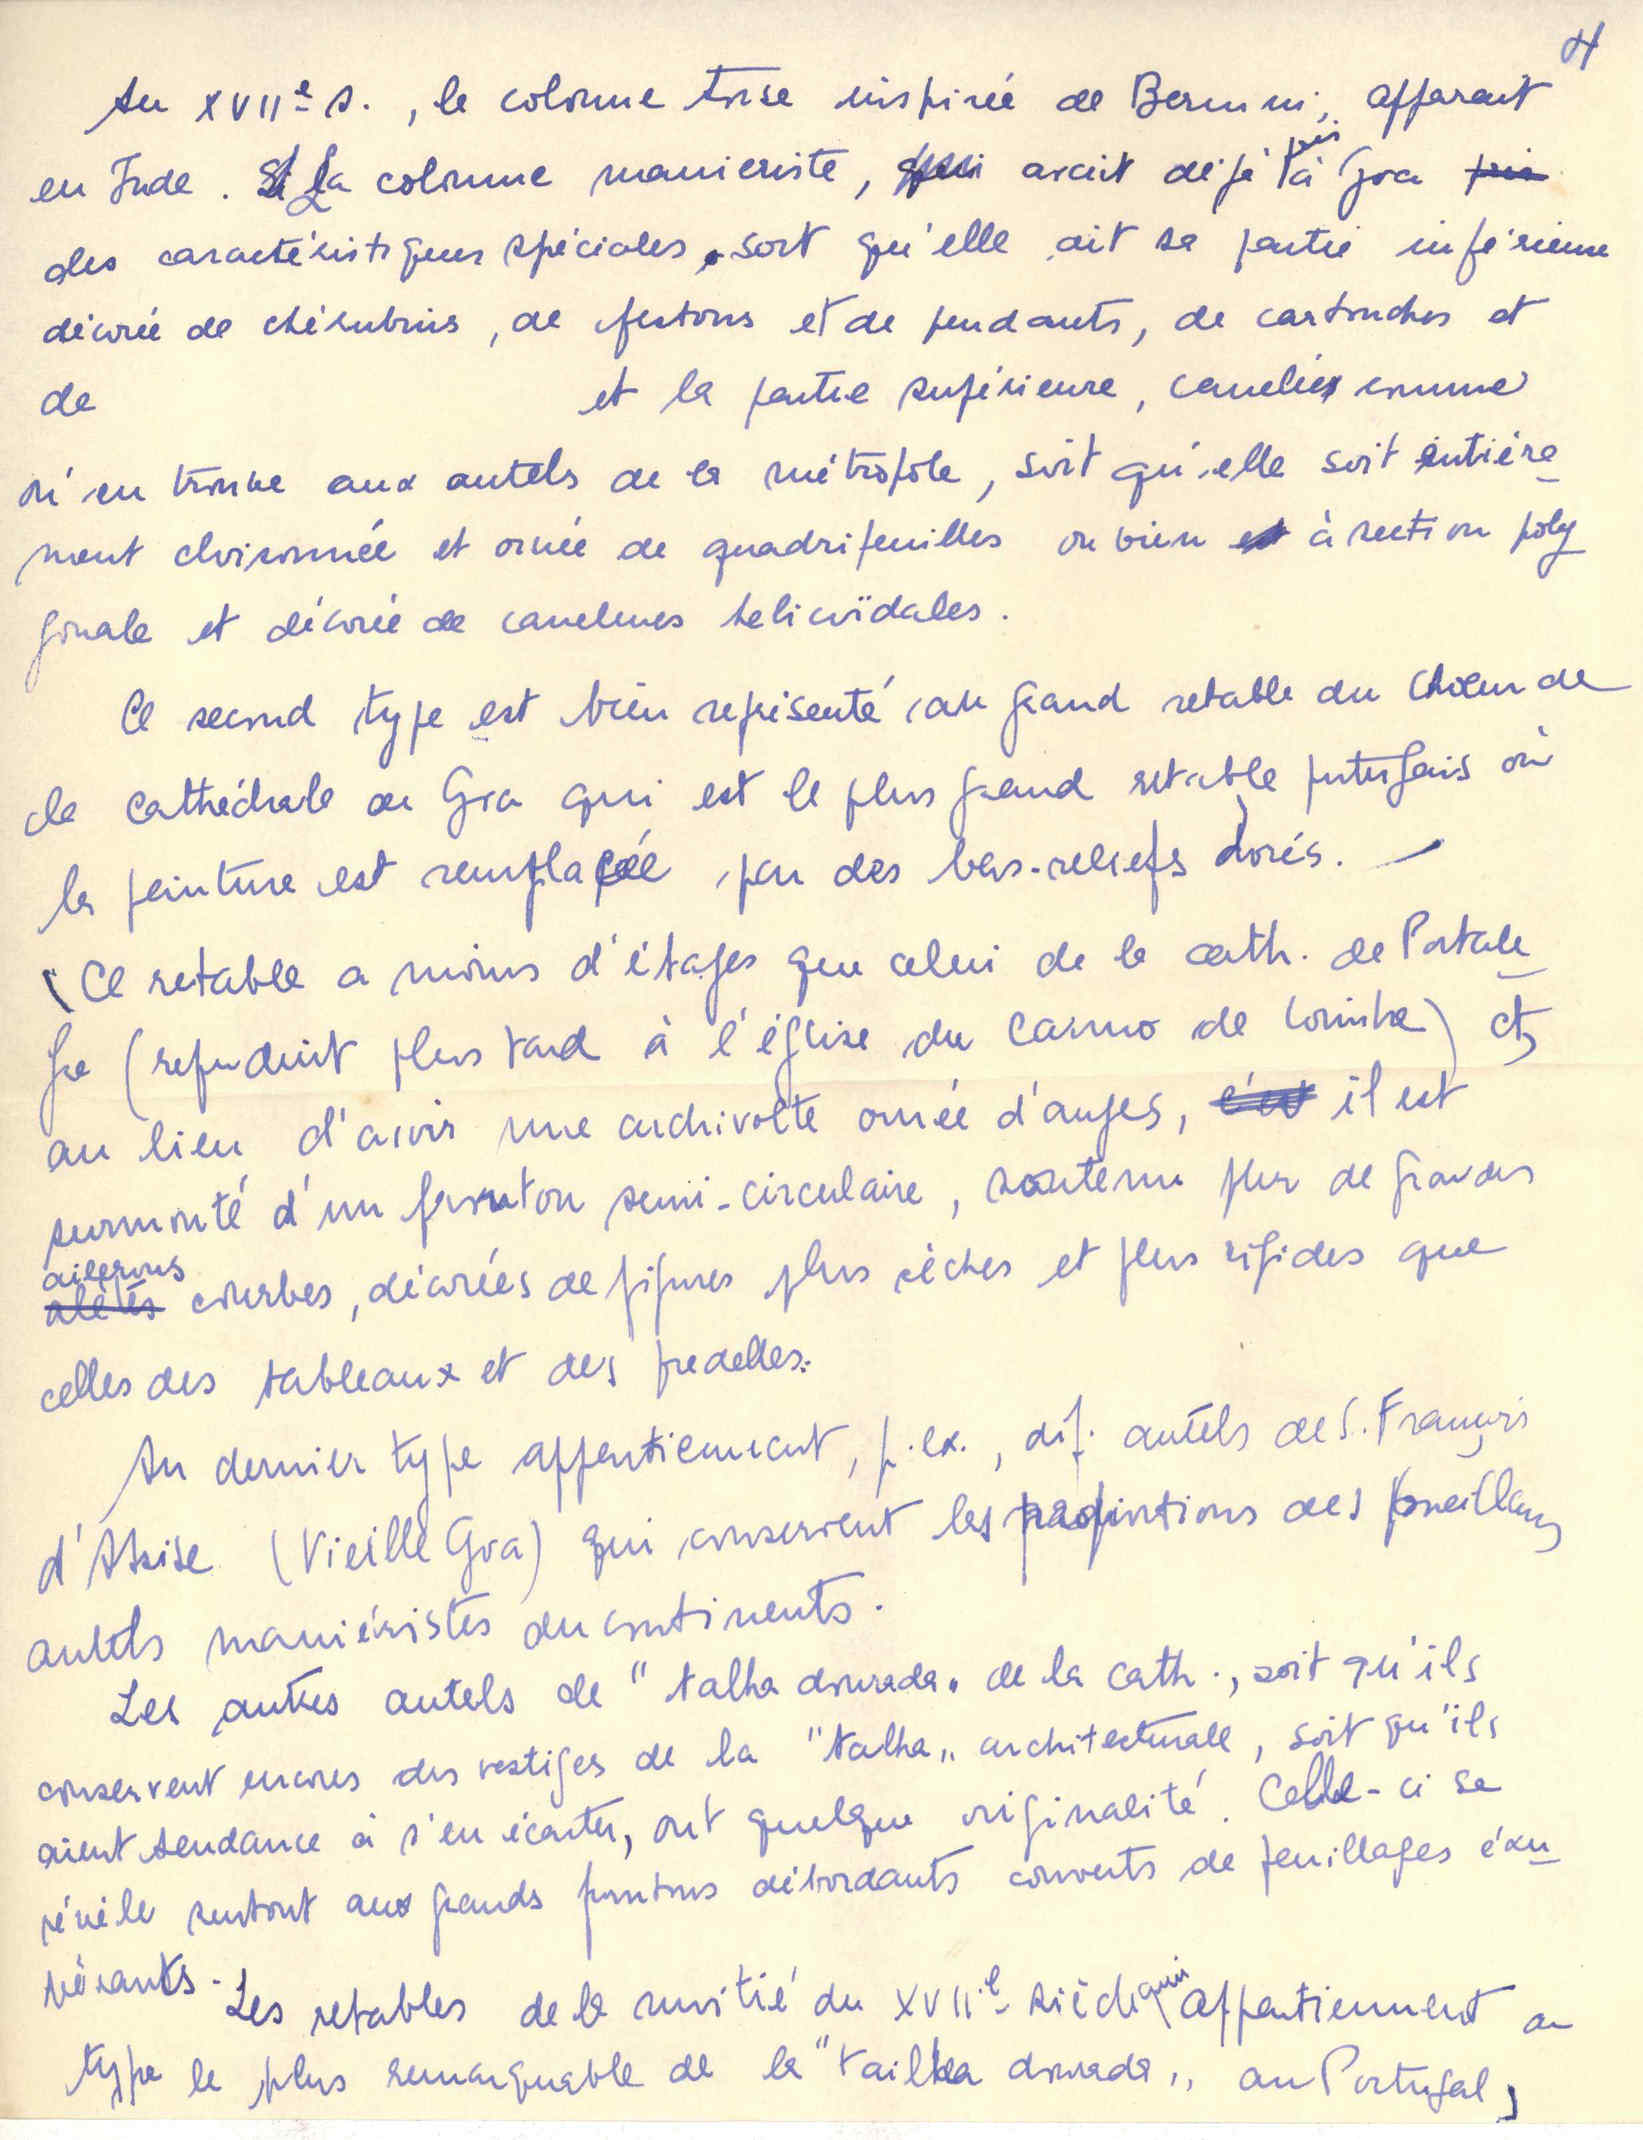 4
Au XVIIe s., la colonne torse inspirée de Bernini, apparait
en Inde. Si La colonne manieriste, qui avait déjà pris à Goa pris
des caractéristiques spéciales, soit qu'elle ait sa partie inférieure
décorée de chérubins, de festons et de pendants, de cartouches et
de et la partie supérieure, canelée comme
on en trouve aux autels de la métropole, soit qu'elle soit entière
ment cloisonnée et ornée de quadrifeuilles ou bien est à section poly
gonale et décorée de canelures helicoïdales.
Ce second type est bien représenté au grand retable du Choeur de
la Cathédrale de Goa qui est le plus grand retable portugais où
la peinture est remplacée par des bas-reliefs dorés. —
(Ce retable a moins d'étages que celui de la cath. de Portale
gre (reproduit plus tard à l'église du Carmo de Coimbra) et,
au lieu d'avoir une archivolte ornée d'anges, c'est il est
surmonté d'un fronton semi-circulaire, soutenu par de grandes
ailerons
alètes courbes, décorées de figures plus sèches et plus rigides que
celles des tableaux et des predelles.
Au dernier type appartiennent, p. ex., dif. autels de S. François
d'Assise (Vieille Goa) qui conservent les proportions des
autels maniéristes du continents.
Les autres autels de "talha dourada" de la cath., soit qu'ils
conservent encores des vestiges de la "talha" architecturale, soit qu'ils
aient tendance à s'en écarter, ont quelque originalité. Celle-ci se
révèle surtout aux grands frontons débordants couverts de feuillages exu
bérants. Les retables de la moitié du XVIIe siècle qui appartiennent au
type le plus remarquable de la "tailha dourada" au Portugal,